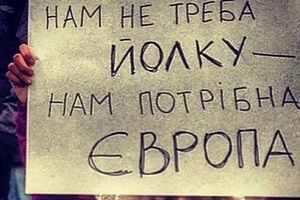 НАМ НЕ ТРЕБА
ЙОЛКУ —
НАМ ПОТРІБНА
ЄВРОПА